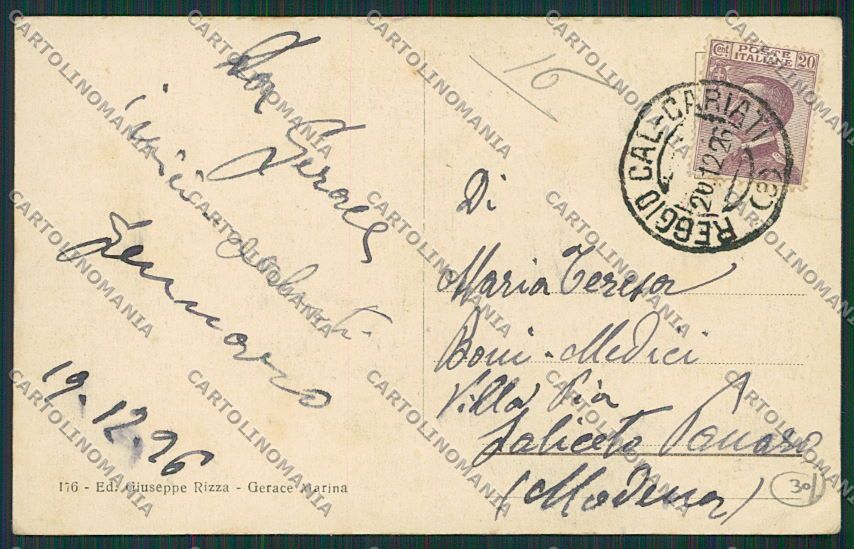 Da Gerace
i miei saluti
Gennaro
19.12.26
176 - Ed. Giuseppe Rizza - Gerace Marina
16
Cent. POSTE ITALIANE 20
REGGIO CAL-CARIATI
20.12.26
Di
Maria Teresa
Boni-Medici
Villa Pia
Saliceto Panaro
(Modena)
30
CARTOLINOMANIA